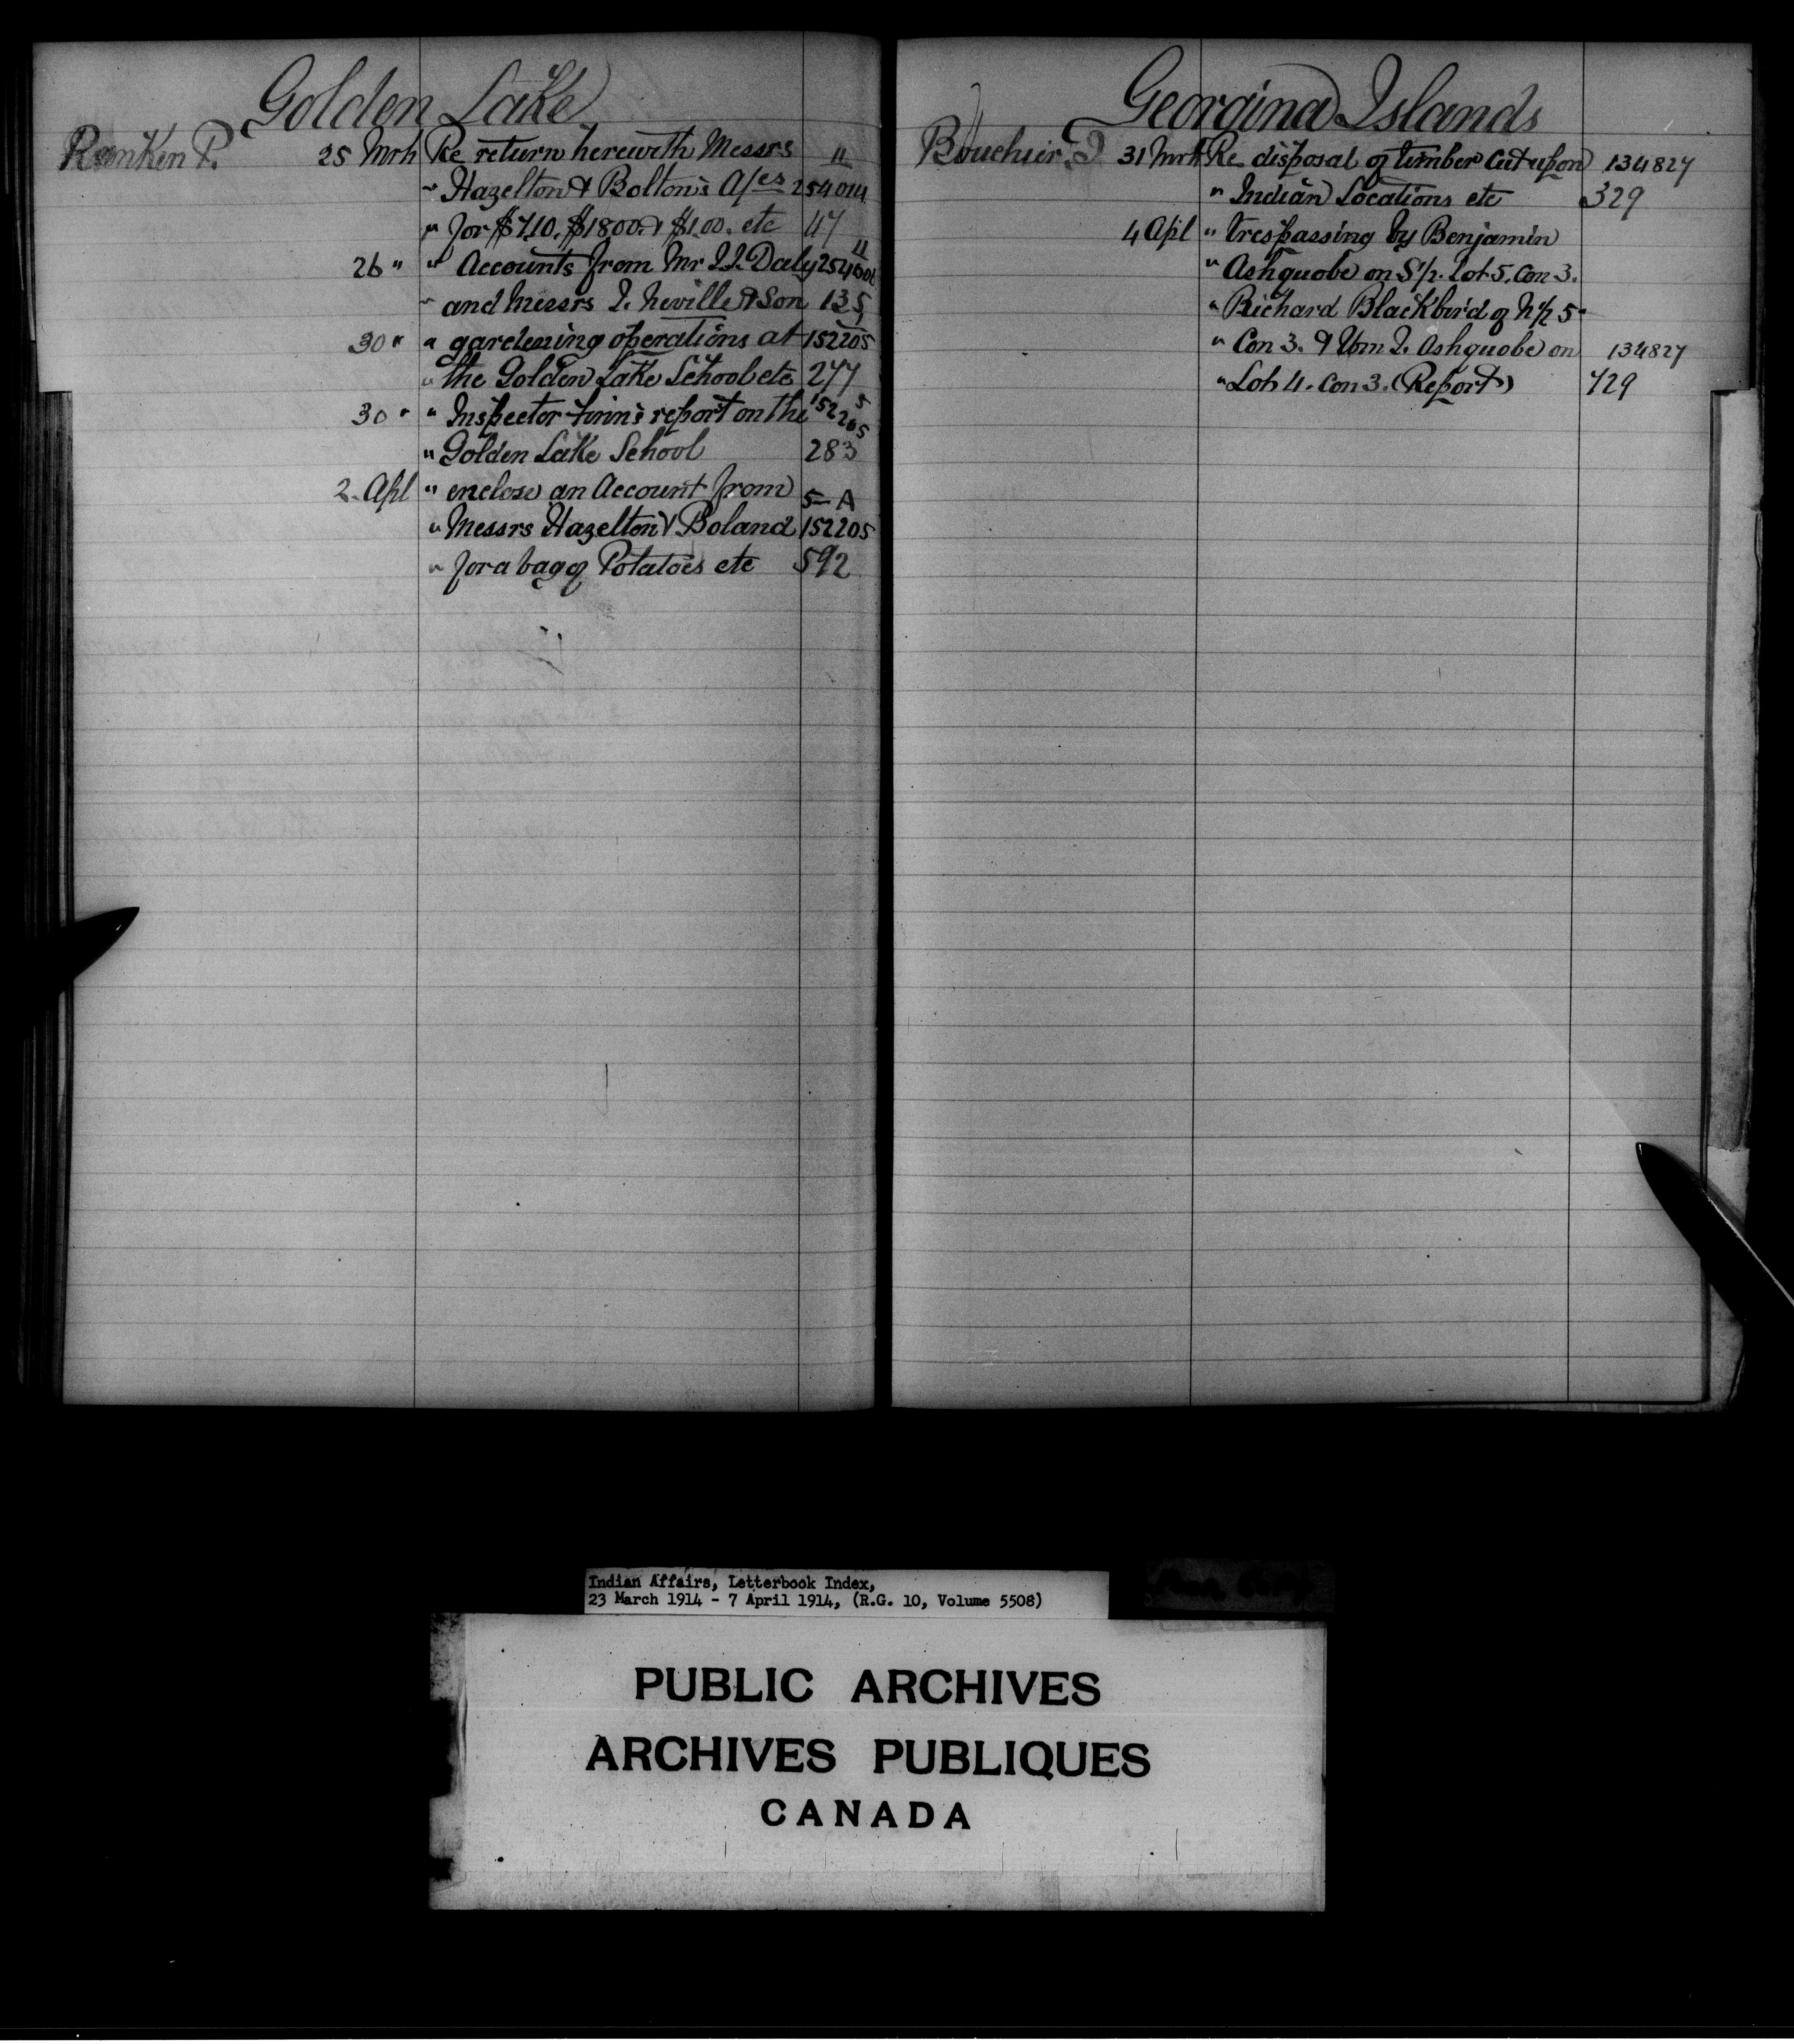 Golden Lake
Ranken P. 25 Mrh Re return herewith Messrs 11
" Hazelton & Bolton's A/cs 254014
" for $7.10. $18.00. & $1.00. etc 47
26 " " Accounts from Mr J.J. Daly 11
" and Messrs J. Neville & Son 135
30 " " gardening operations at 152205
" the Golden Lake School etc 277
30 " " Inspector report on the 152205
" Golden Lake School 283
2. Apl " enclose an Account from 5-A
" Messrs Hazelton & Boland 152205
" for a bag of Potatoes etc 592
Georgina Islands
Bouchier. J 31 Mrh Re disposal of timber cut upon 134827
" Indian Locations etc 329
4 Apl " trespassing by Benjamin
" Ashquobe on S½. Lot 5. Con 3.
" Richard Blackbird of N½ 5 "
" Con 3. & Wm J. Ashquobe on 134827
" Lot 4. Con 3. (Report) 729
Indian Affairs, Letterbook Index,
23 March 1914 - 7 April 1914, (R.G. 10, Volume 5508)
PUBLIC ARCHIVES
ARCHIVES PUBLIQUES
CANADA